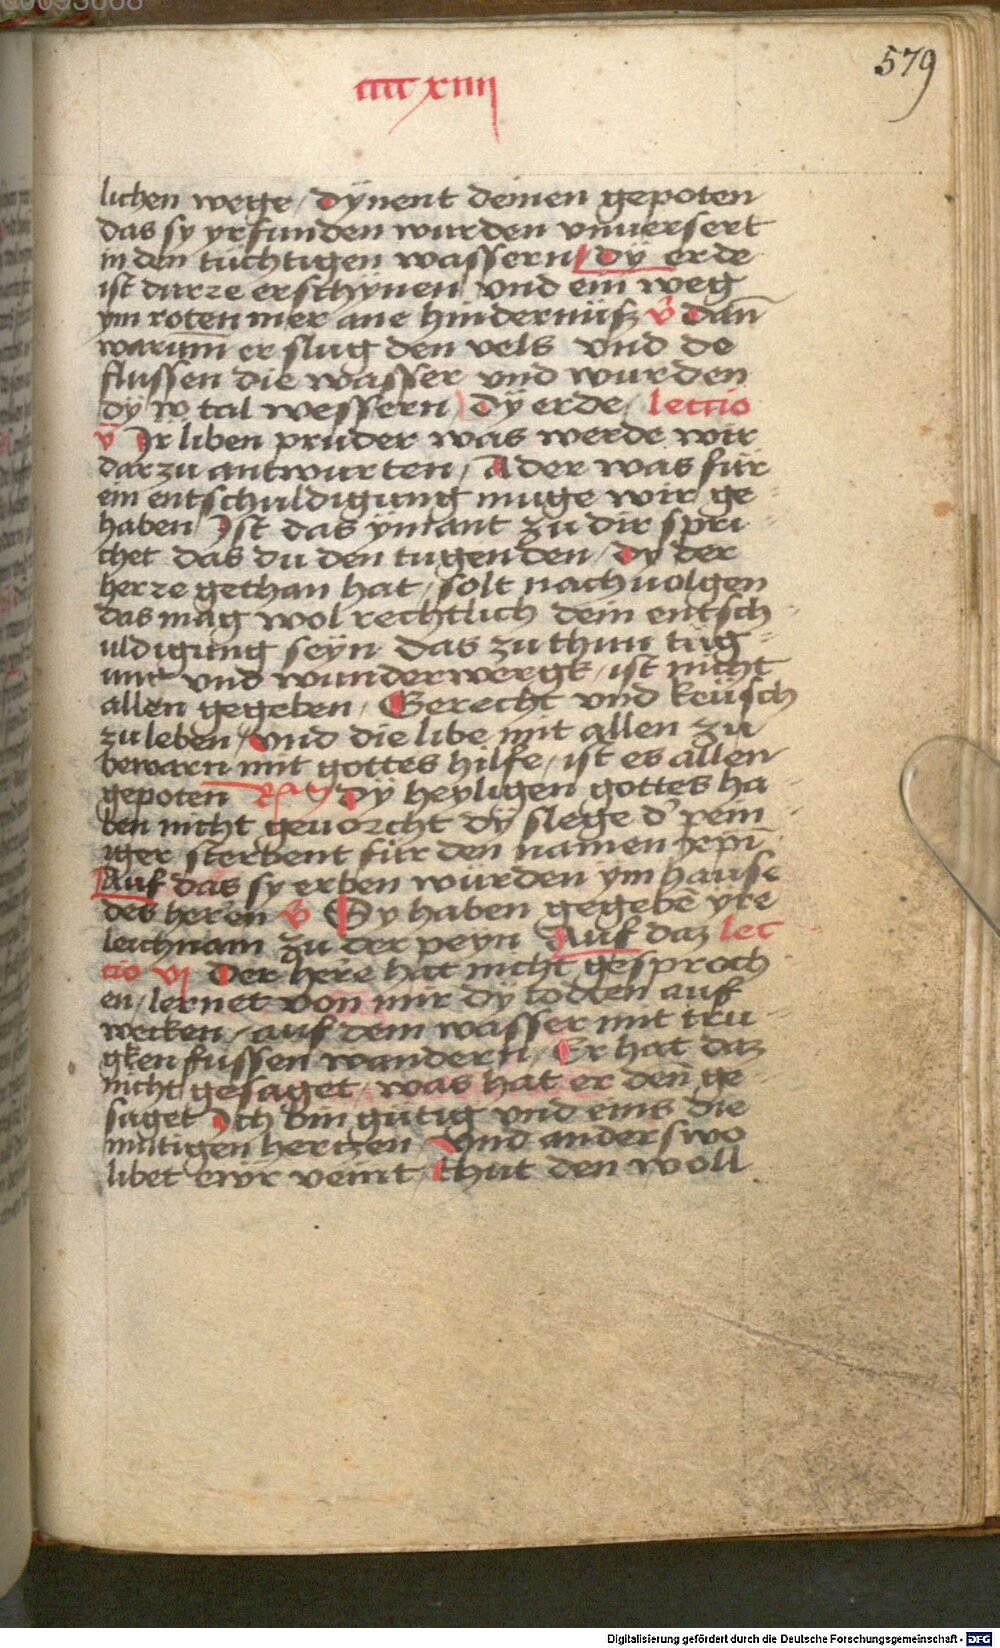 00093668
579
cccc xiiii
lichen wege / dÿnent deinen gepoten
das sy yrfunden wurden vnuersert
in den tuchtigen wassern / dÿ erde
ist durre erschÿnen vnd ein weg
ym roten mer ane hindernüsz v̄ dan̄
warum̄ er slug den vels vnd do
flussen die wasser vnd wurden
dÿ w tal wessern / dÿ erde / lectio
v̄ Ir liben pruder was werde wir
darzu antwurten / Ader was für
ein entschuldigung muge wir ge
haben / Ist das ÿmant zu dir spri
chet das du den tugenden / dy der
herre gethan hat / solt nachuolgen
das mag wol rechtlich dein entsch
uldigung seÿn das zu thun tüg
unt vnd wunderwergk / ist nicht
allen gegeben / Gerecht vnd keüsch
zu leben / vnd die libe mit allen zu
bewarn mit gottes hilfe / ist es allen
gepoten dÿ heyligen gottes ha
ben nicht geuorcht dÿ slege d' pein
iger sterbent für den namen
Auf das sy erben wurden ym hause
des heren v̄ Sy haben gegebē yre
leichnam zu der peyn Auf daz lec
tio vj Der here hat nicht gesproch
en / lernet von mir dÿ todten auf
wecken / auf dem wasser mit tru
gken fussen wandern / Er hat daz
nicht gesaget / was hat er den ge
saget Ich bin gutig vnd eins die
mutigen hertzen / Vnd anderswo
libet ewr veint / thut den woll
Digitalisierung gefördert durch die Deutsche Forschungsgemeinschaft - DFG